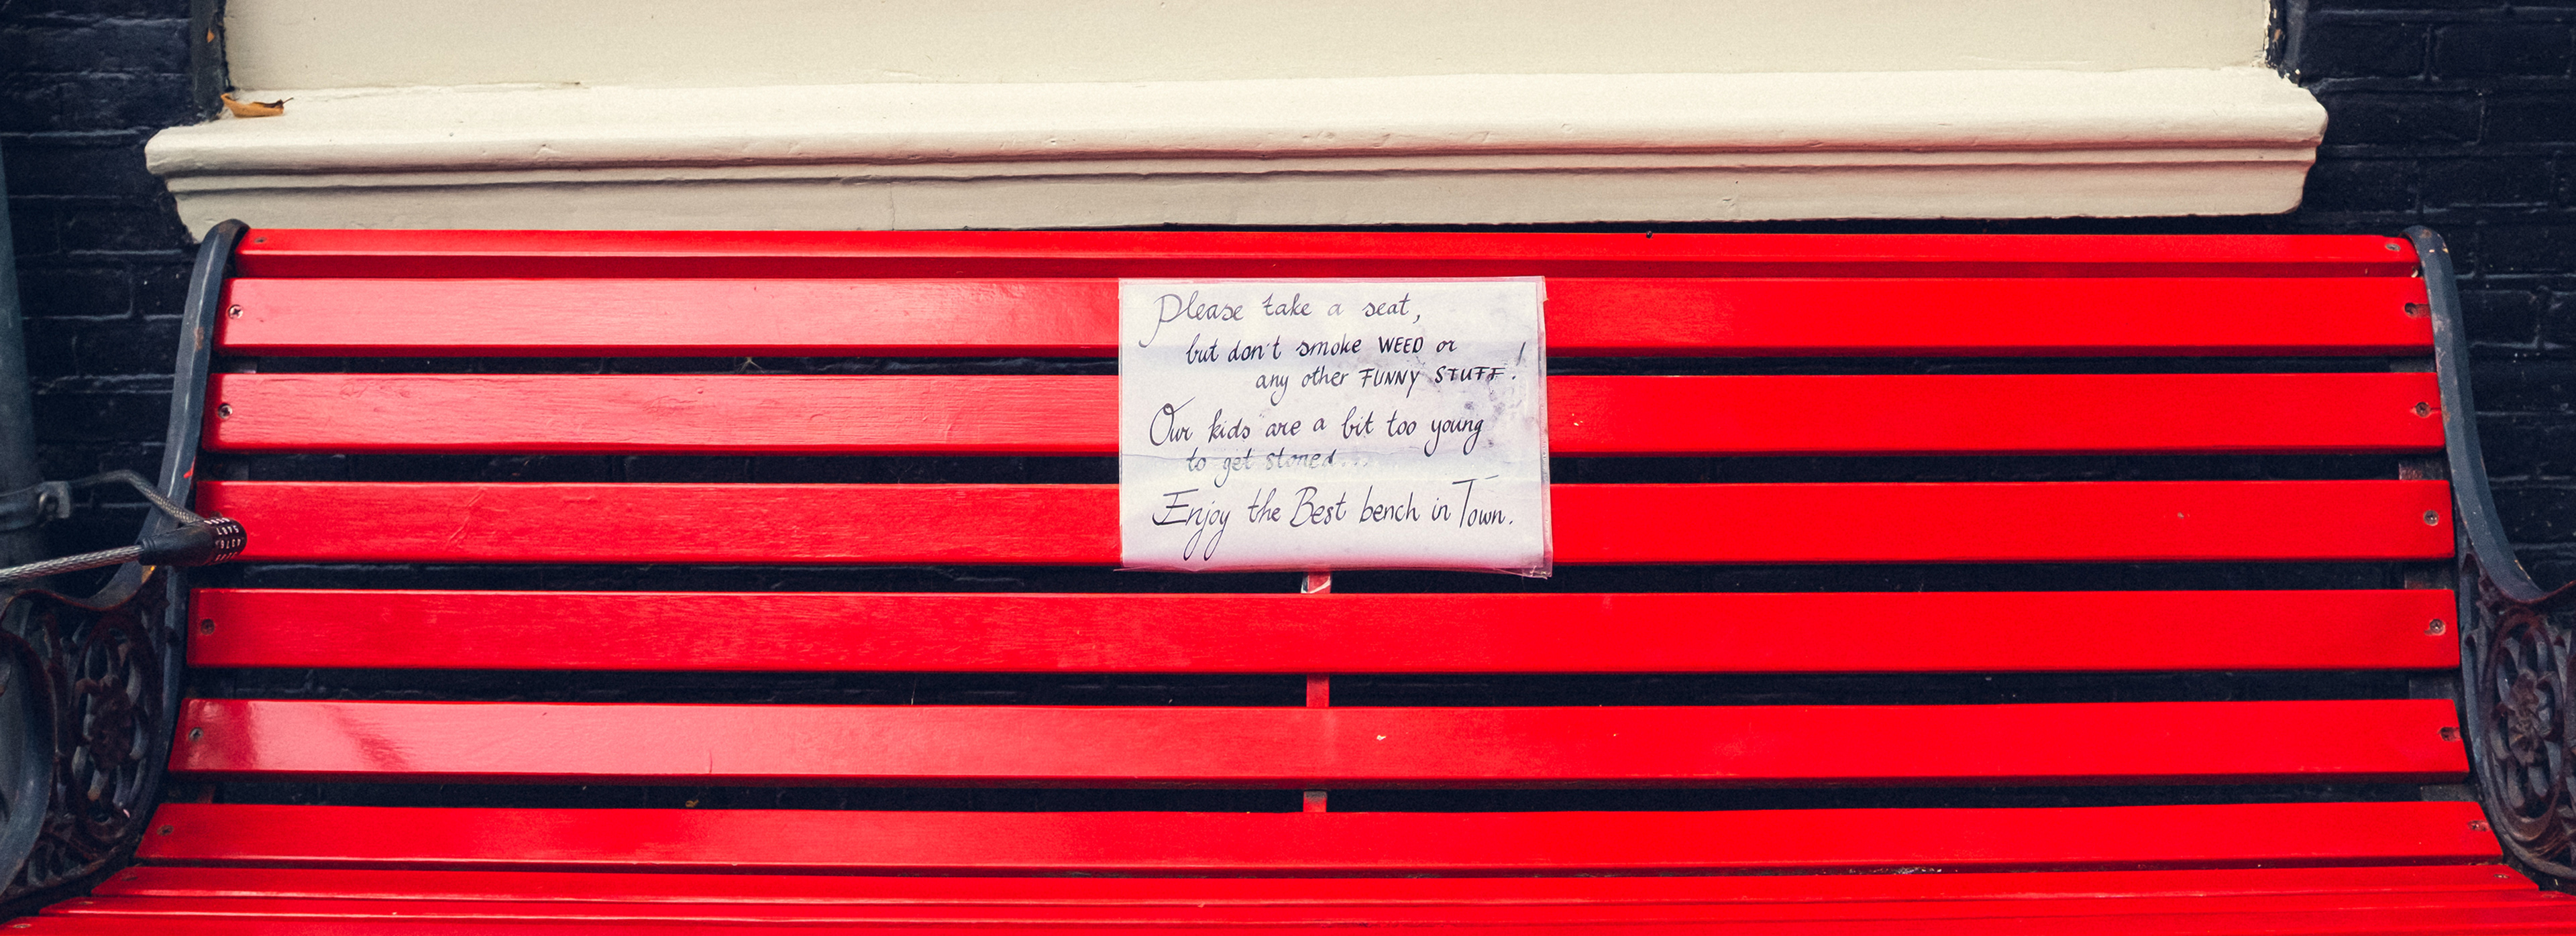 Please take a seat,
but don't smoke WEED or
any other FUNNY STUFF!
Our kids are a bit too young
to get stoned...
Enjoy the Best bench in Town.